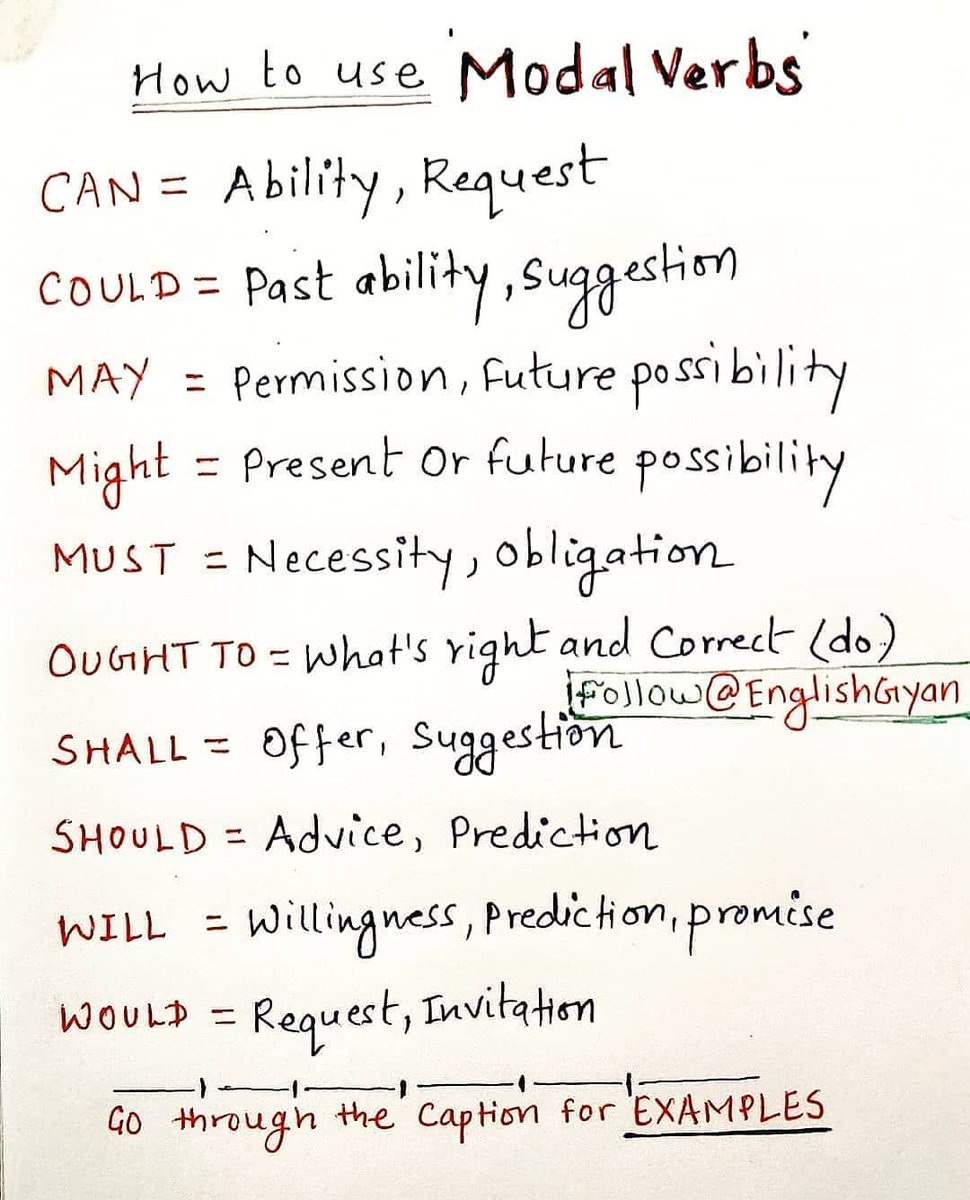 How to use 'Modal Verbs'
CAN = Ability, Request
COULD = Past ability, suggestion
MAY = Permission, future possibility
Might = Present or future possibility
MUST = Necessity, obligation
OUGHT TO = What's right and correct (do)
Follow@EnglishGyan
SHALL = Offer, suggestion
SHOULD = Advice, Prediction
WILL = Willingness, Prediction, promise
WOULD = Request, Invitation
Go through the Caption for EXAMPLES